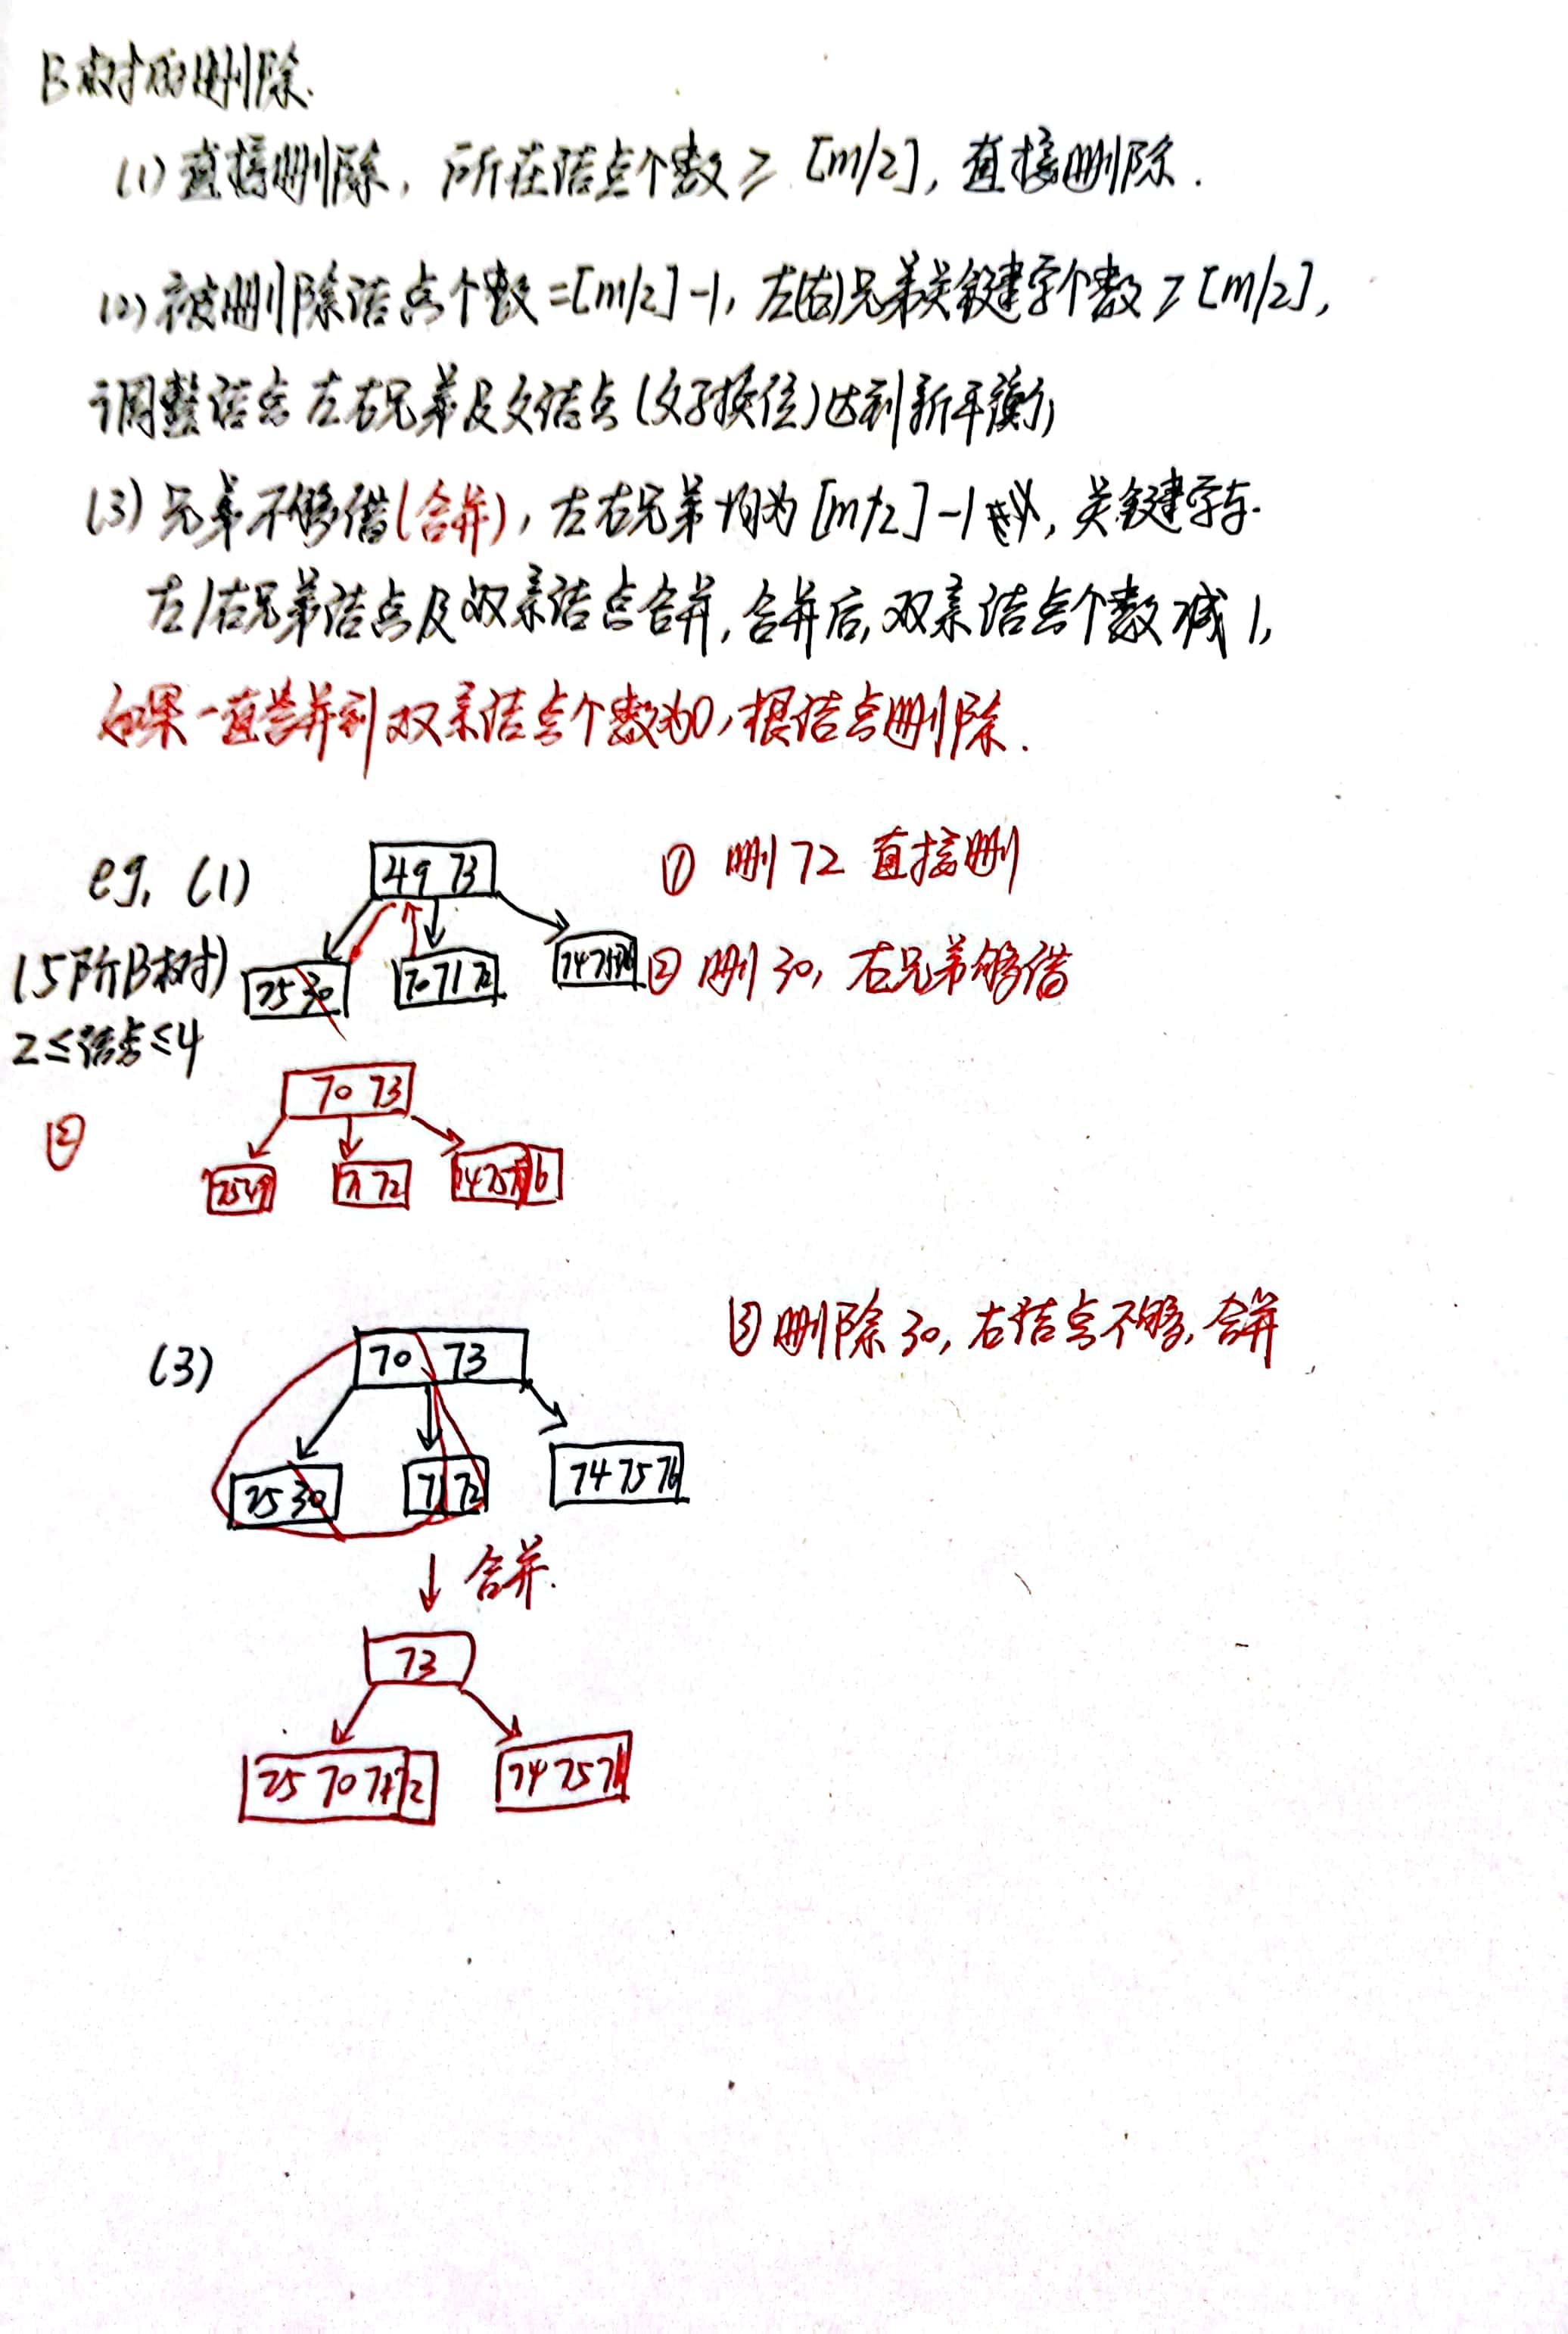 B树的删除.
(1) 直接删除, 所在结点个数 ≥ [m/2], 直接删除.
(2) 被删除结点个数 = [m/2] - 1, 左(右)兄弟关键字个数 ≥ [m/2],
调整结点左右兄弟及父结点(父子换位)达到新平衡,
(3) 兄弟不够借(合并), 左右兄弟均为 [m/2] - 1, 关键字与
左/右兄弟结点及双亲结点合并, 合并后, 双亲结点个数减1,
如果一直合并到双亲结点个数为0, 根结点删除.
eg. (1)
49 73
① 删 72 直接删
(5阶B树)
25 30
70 71 72
74 75 76
② 删 30, 右兄弟够借
2 ≤ 结点 ≤ 4
②
70 73
25 49
71 72
74 75 76
(3)
70 73
③ 删除 30, 右结点不够, 合并
25 30
71 72
74 75 76
↓ 合并.
73
25 70 71 72
74 75 76